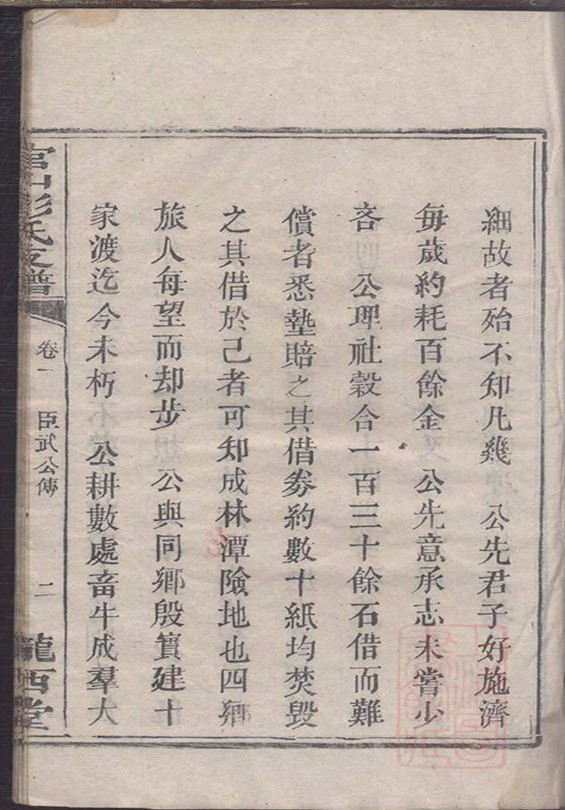 細故者殆不知凡幾　公先君子好施濟
每歲約耗百餘金　公先意承志未嘗少
吝　公理社穀合一百三十餘石借而難
償者悉墊賠之其借券約數十紙均焚毀
之其借於己者可知成林潭險地也四鄉
旅人每望而却步　公與同鄉殷實建十
家渡迄今未朽　公耕數處畜牛成羣大
官山彭氏支譜
卷一
臣武公傳
二
隴西堂